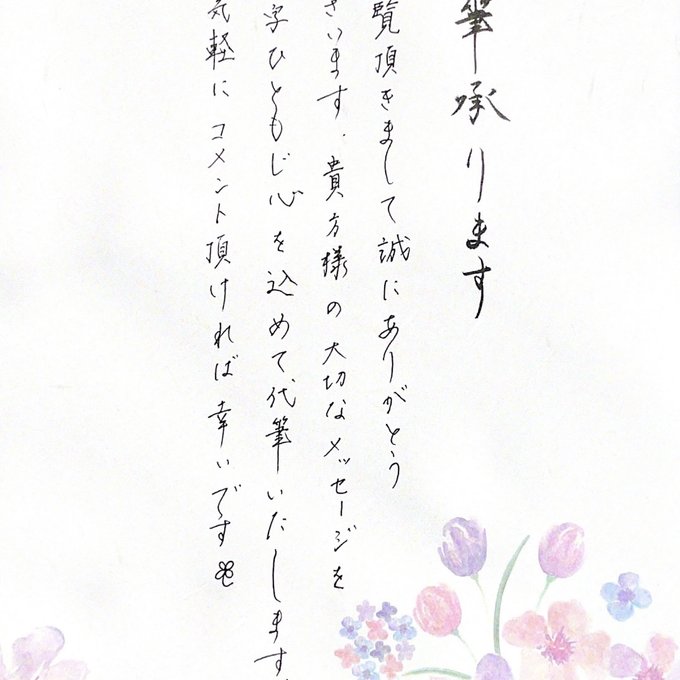 筆承ります
覧頂きまして誠にありがとう
ざいます．貴方様の大切なメッセージを
字ひともじ心を込めて代筆いたします．
気軽にコメント頂ければ幸いです